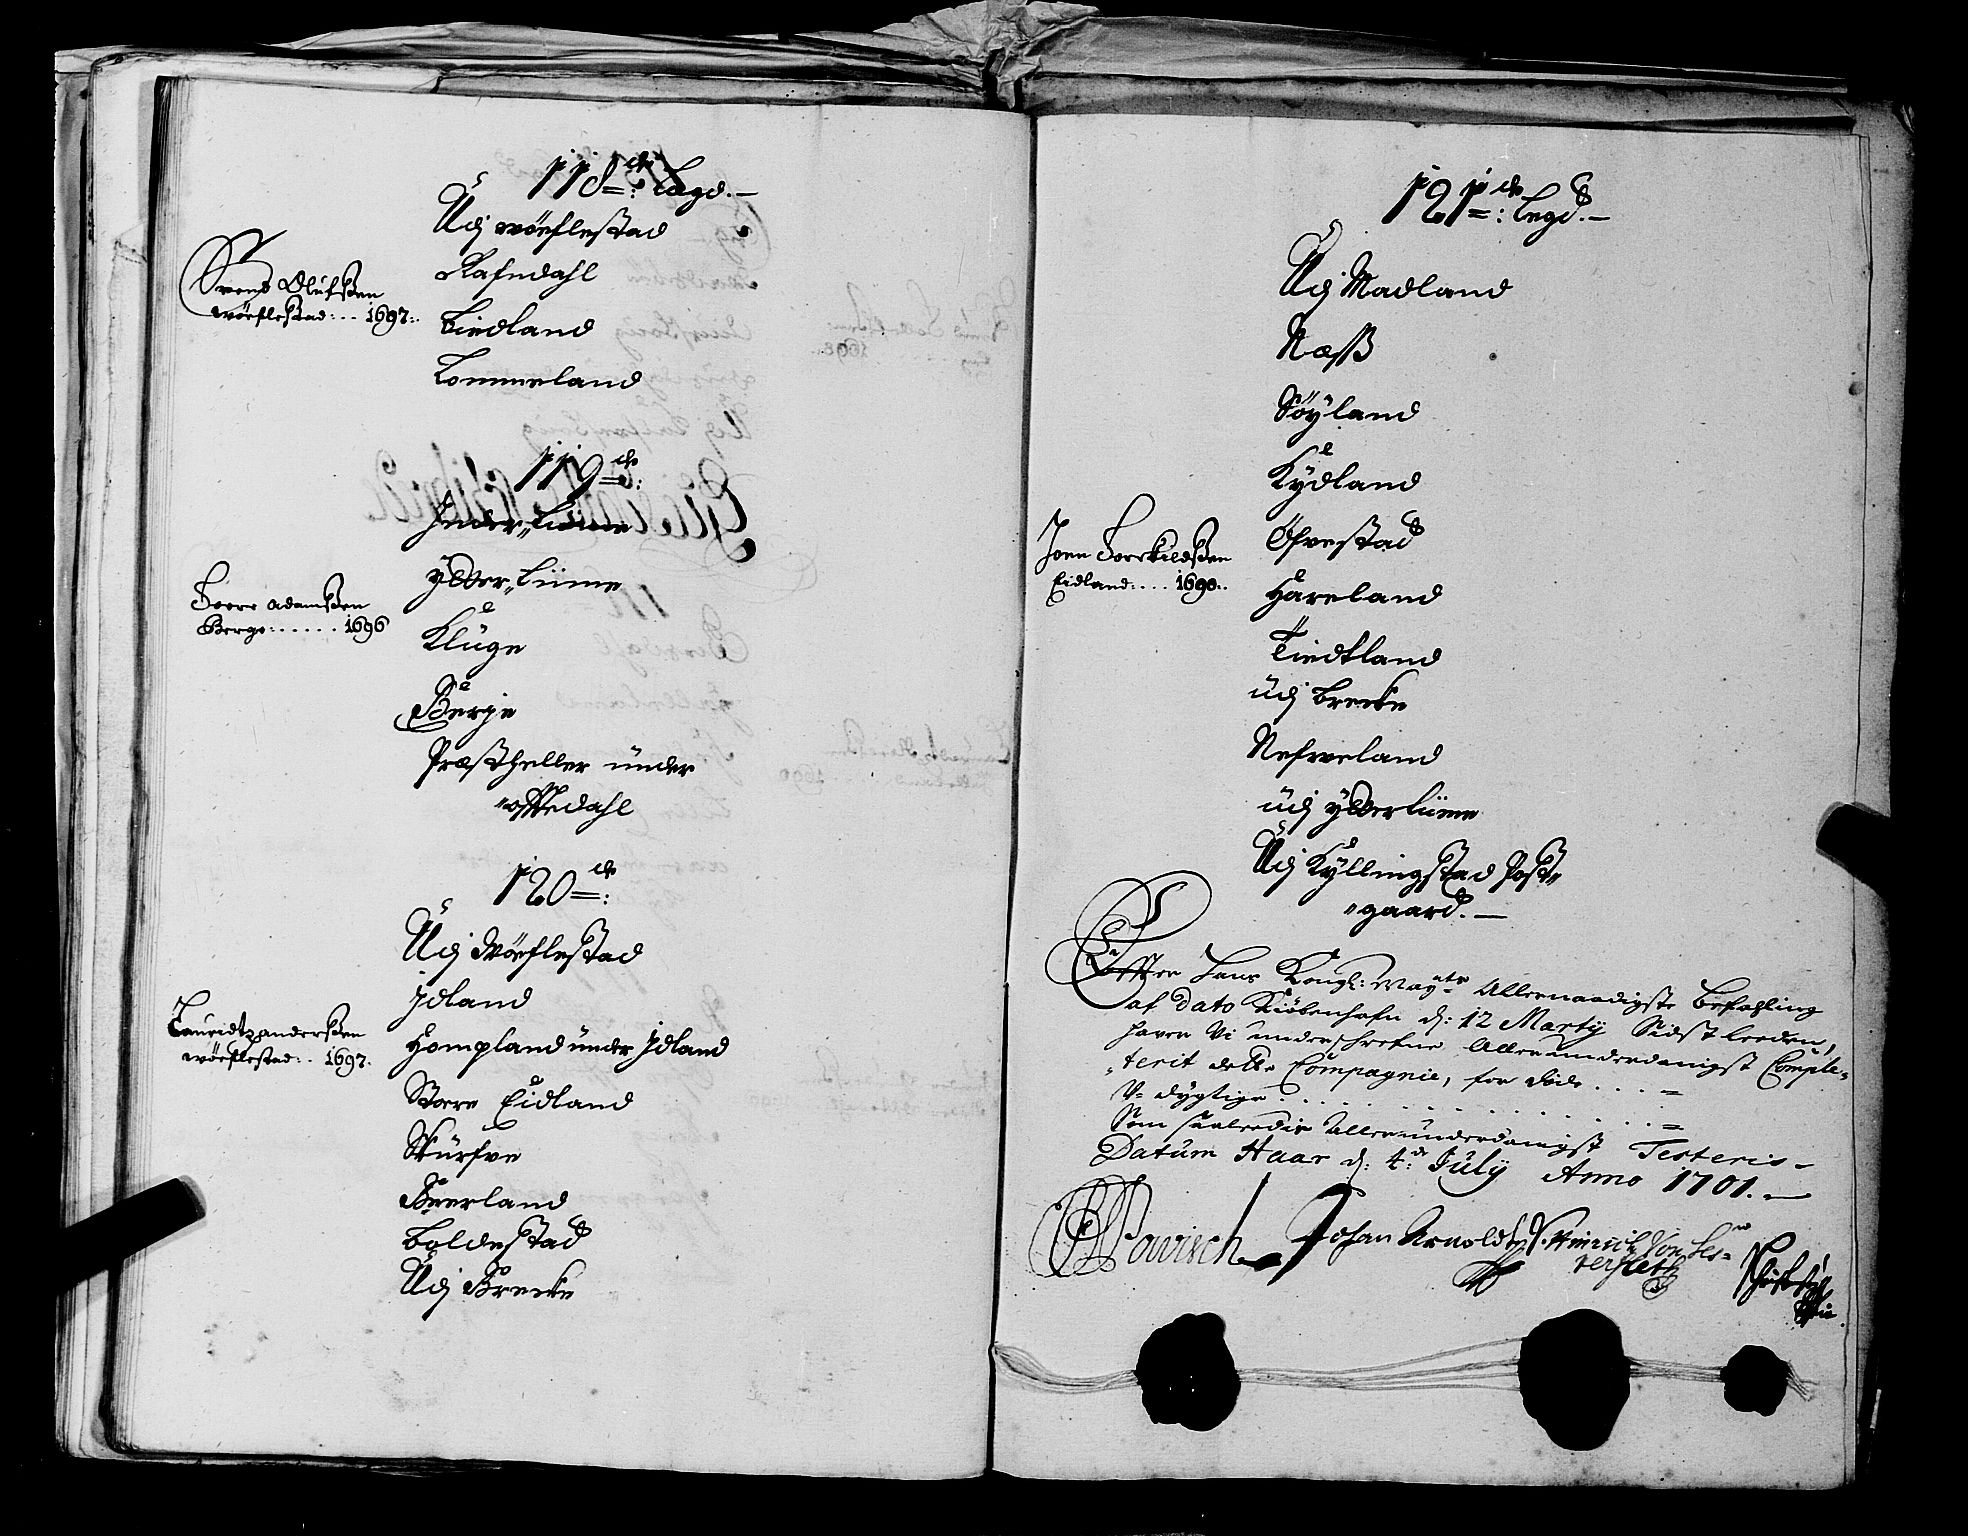 118de Legd.
Udj Wörflestad
Rafndahl
Liedland
Lommeland
Svend Olufsßen
Wörflestad: .. 1697.
119de:
Inder Liime
Ytter Liime
Kluge
Berge
Præstheller under
Offtedahl
Torre Adamsßen
Berge: ...... 1696
120de:
Udj Wörflestad
Idland
Hompland under Idland
Store Eidland
Skurfve
Beerland
Boldestad
Udj Brecke
Lauridtz Andersßen
Wörflestad: .. 1697.
121de Legd.
Udj Madland
Næsß
Söyland
Kydland
Ofvestad
Hareland
Tiedtland
udj Brecke
Nefveland
udj Ytter Liime
Udj Kyllingstad Post
gaard.
Joen Torckildsßen
Eidland: .... 1690..
Effter Hans Kongl: Mayts Allernaadigste Befahling
af dato Kiöbenhafn d: 12 Martij Sidst leeden,
hafver Vi underschrefne Allerunderdanigst Comple-
terit dette Compagnie, for döde . . . =
U-dygtige . . . . . . . . . . . . . =
Som saaledis Allerunderdanigst Testeris
Datum Haar d: 4de July Anno 1701.
Powisch Johan Arnoldt Hinrich Von